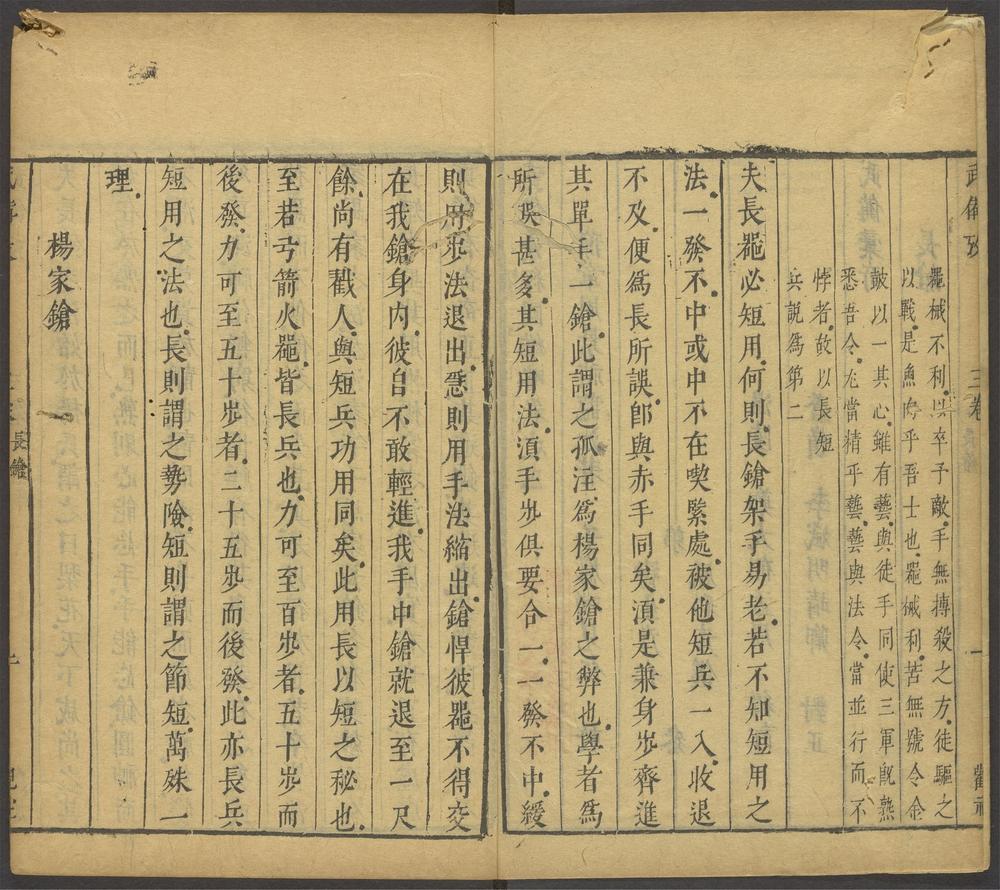 武備攷 三卷 一
噐械不利以卒予敵手無搏殺之方徒驅之
以戰是魚肉乎吾士也噐械利苦無號令金
皷以一其心雖有藝與徒手同使三軍旣熟
悉吾令尤當精乎藝藝與法令當並行而不
悖者故以長短
兵說爲第二
夫長噐必短用何則長鎗架手易老若不知短用之
法一發不中或中不在喫緊處被他短兵一入收退
不及便爲長所誤卽與赤手同矣湏是兼身步齊進
其單手一鎗此謂之孤注爲楊家鎗之弊也學者爲
所誤甚多其短用法湏手步俱要合一一發不中緩
則用步法退出急則用手法縮出鎗悍彼噐不得交
在我鎗身內彼自不敢輕進我手中鎗就退至一尺
餘尚有戳人與短兵功用同矣此用長以短之秘也
至若弓箭火噐皆長兵也力可至百步者五十步而
後發力可至五十步者二十五步而後發此亦長兵
短用之法也長則謂之勢險短則謂之節短萬殊一
理
楊家鎗
長鎗